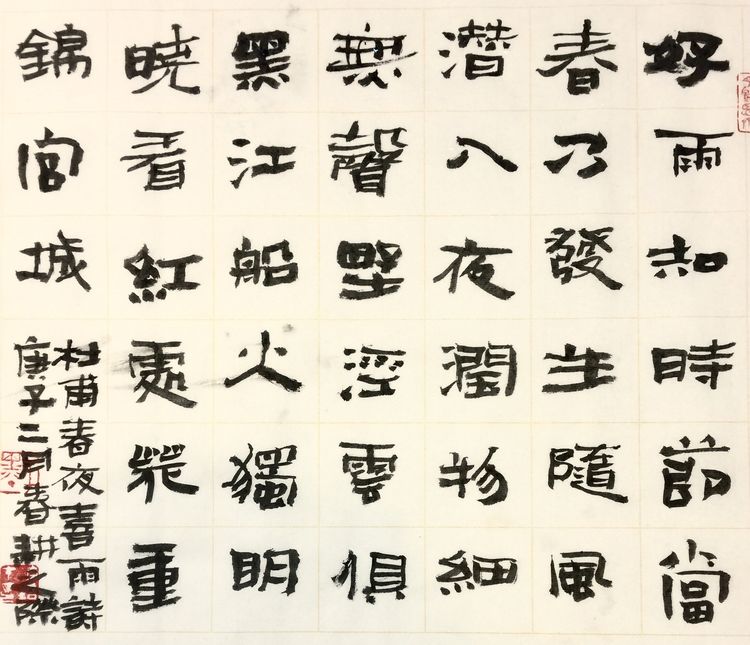 好雨知時節當
春乃發生隨風
潛入夜潤物細
無聲野涇雲俱
黑江船火獨明
曉看紅處花重
錦官城
杜甫春夜喜雨詩
庚子二月春耕之際